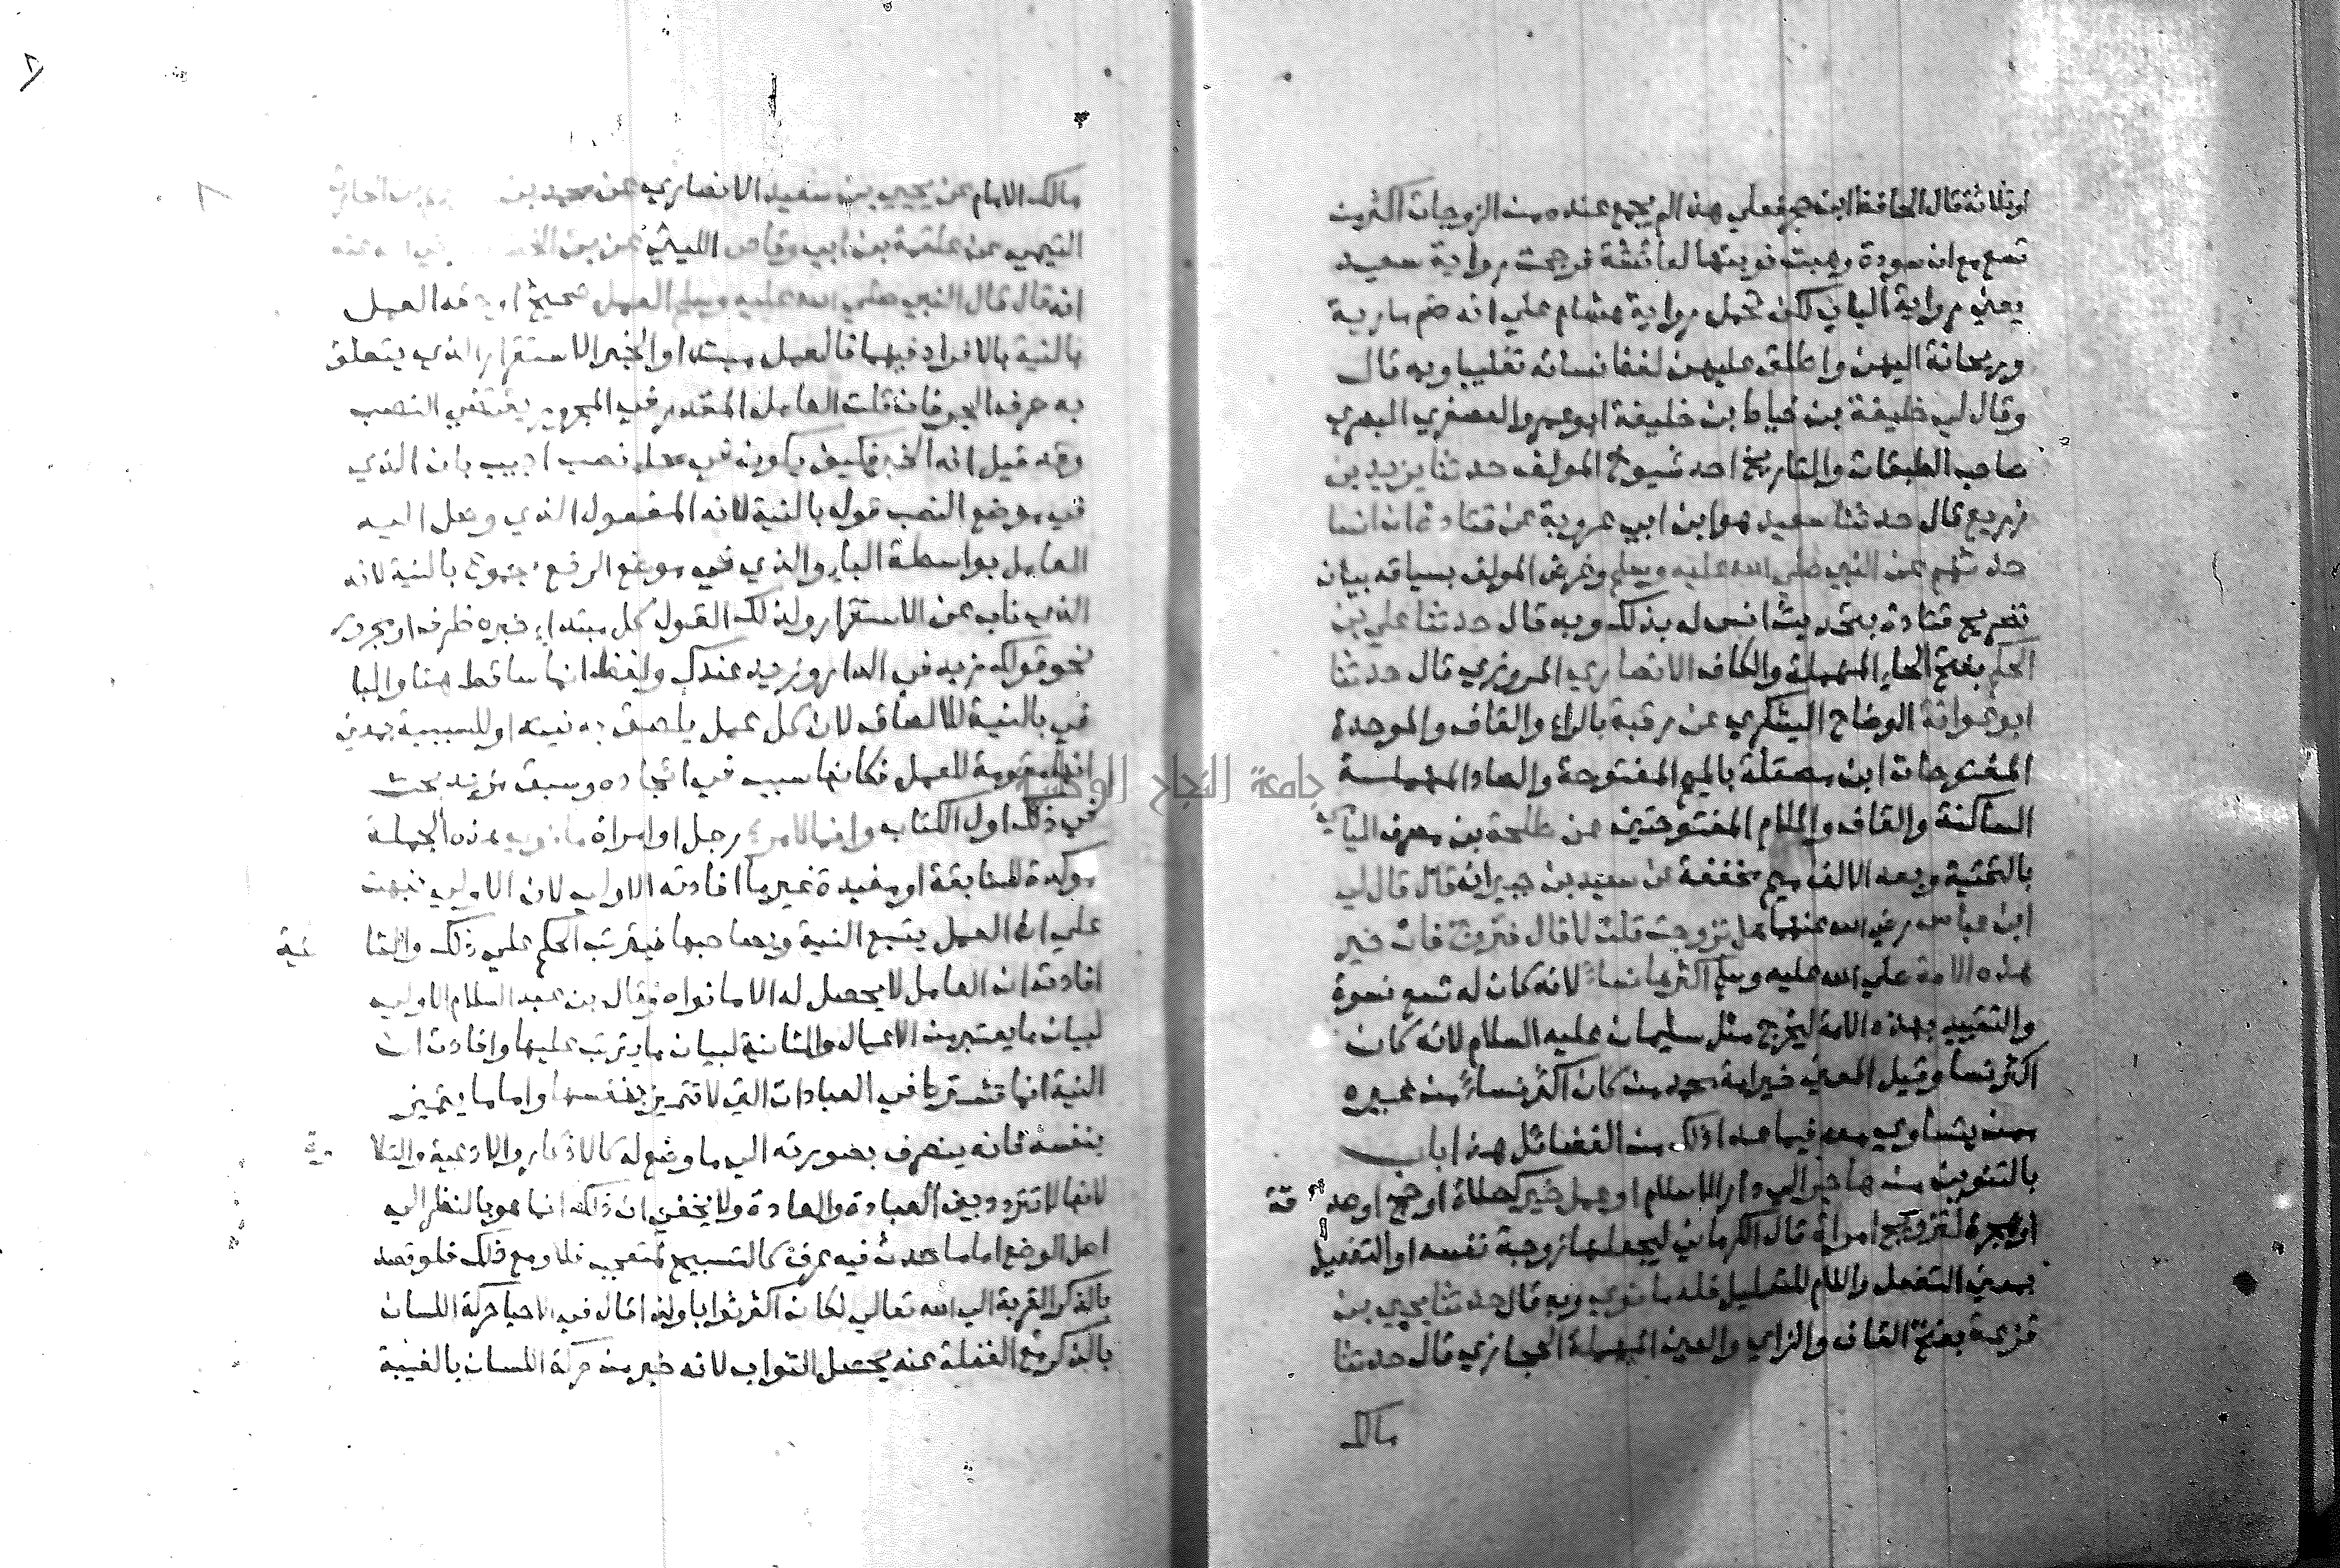 او ثلاثة قال الحافظ ابن حجر فعلي هذا لم يجتمع عنده من الزوجات اكثر من
تسع مع ان سودة وهبت نوبتها لعائشة فرجحت رواية سعيد
يعني رواية الباب لكن تحمل رواية هشام علي انه ضم مارية
وريحانة اليهن واطلق عليهن لفظ نسائه تغليبا وبه قال
وقال لي خليفة بن خياط بن خليفة ابو عمرو العصفري البصري
صاحب الطبقات والتاريخ احد شيوخ المولف حدثنا يزيد بن
زريع قال حدثنا سعيد هو ابن ابي عروبة عن قتادة ان انسا
حدثهم عن النبي صلي الله عليه وسلم وغرض المولف بسياقه بيان
تصريح قتادة بتحديث انس له بذلك وبه قال حدثنا علي بن
الحكم بفتح الحاء المهملة والكاف الانصاري المروزي قال حدثنا
ابو عوانة الوضاح اليشكري عن رقبة بالراء والقاف والموحدة
المفتوحات ابن مصقلة بالميم المفتوحة والصاد المهملة
الساكنة والقاف واللام المفتوحتين عن طلحة بن مصرف اليامي
بالتحتية وبعد الالف ميم مخففة عن سعيد بن جبير انه قال قال لي
ابن عباس رضي الله عنهما هل تزوجت قلت لا قال فتزوج فان خير
هذه الامة صلي الله عليه وسلم اكثرها نساء لانه كان له تسع نسوة
والتقييد بهذه الامة ليخرج مثل سليمان عليه السلام لانه كان
اكثر نسا وقيل المعني خير امة محمد من كان اكثر نساء من غيره
ممن يتساوي معه فيما عدا ذلك من الفضائل هذا باب
بالتنوين من هاجر الي دار الاسلام او عمل خير كصلاة او حج او صدقة
او هجرة لتزويج امراة قال الكرماني ليجعلها زوجة نفسه او التفعيل
بمعني التفعل واللام للتعليل فله ما نوي وبه قال حدثنا يحيي بن
قزعة بفتح القاف والزاي والعين المهملة الحجازي قال حدثنا
مالك
مالك الامام عن يحيي بن سعيد الانصاري عن محمد بن الحارث
التيمي عن علقمة بن ابي وقاص الليثي عن عمر بن الخطاب رضي الله عنه
انه قال قال النبي صلي الله عليه وسلم العمل العمل
بالنية بالافراد فيهما فالعمل مبتدا والخبر الاستقرار الذي يتعلق
به حرف الجر فان قلت العامل المقدر في المجرور يقتضي النصب
وقد قيل انه الخبر فكيف يكون في محل نصب اجيب بان الذي
في موضع النصب قوله بالنية لانه المفعول الذي وصل اليه
العامل بواسطة الباء والذي في موضع الرفع مجموع بالنية لانه
الذي ناب عن الاستقرار ولذلك القول كل مبتداء خبره ظرف او مجرور
نحو قولك زيد في الدار وزيد عندك ولفظ انما ساقط هنا والبا
في بالنية للالصاق لان كل عمل يلصق به نيته او للسببية بمعني
انها مقومة للعمل فكانها سبب في ايجاده وسبق مزيد بحث
في ذلك اول الكتاب وانما لامرئ رجل او امراة ما نوي هذه الجملة
موكدة للسابقة او مفيدة غير ما افادته الاولي لان الاولي نبهت
علي ان العمل يتبع النية ويصاحبها فيترتب الحكم علي ذلك والثانية
افادت ان العامل لا يحصل له الا ما نواه وقال بن عبد السلام الاولي
لبيان ما يعتبر من الاعمال والثانية لبيان ما يترتب عليها وافادت ان
النية انما تشترط في العبادات التي لا تتميز بنفسها واما ما يتميز
بنفسه فانه ينصرف بصورته الي ما وضع له كالاذكار والادعية والتلاوة
لانها لا تتردد بين العبادة والعادة ولا يخفي ان ذلك انما هو بالنظر الي
اصل الوضع اما ما حدث فيه عرف كالتسبيح للتعجب فلا ومع ذلك فلو قصد
بالذكر القربة الي الله تعالي لكان اكثر ثوابا ولذا قال في الاحيا حركة اللسان
بالذكر مع الغفلة عنه يحصل الثواب لانه خير من حركة اللسان بالغيبة
جامعة النجاح الوطنية